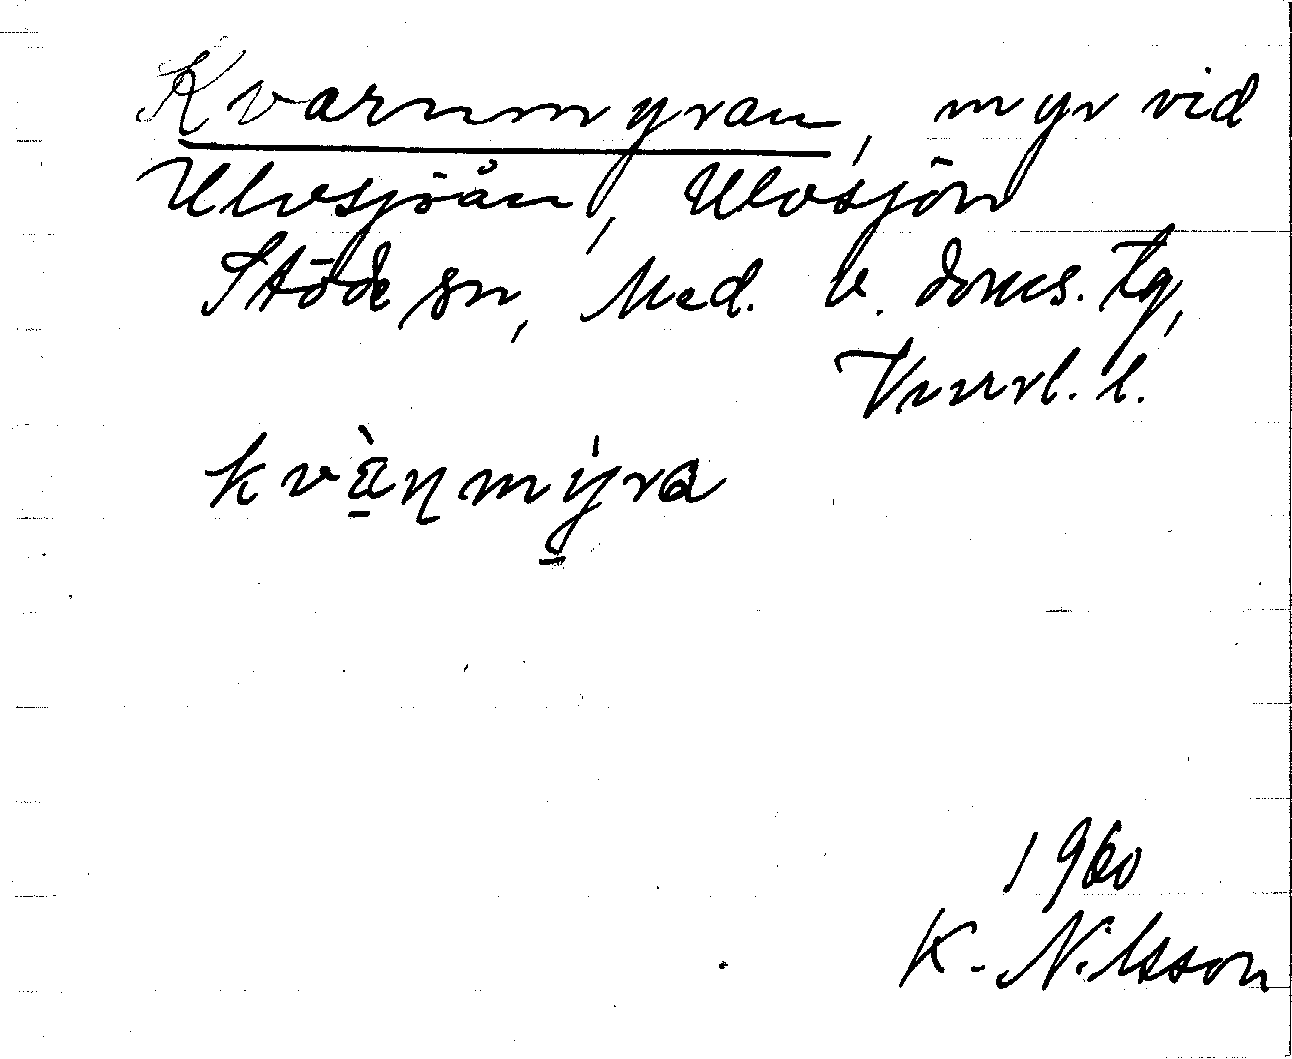 Kvarnmyran, myr vid
Ulvsjöån, Ulvsjön
Stöde sn, Med. v. doms. tg,
Vnrrl. l.
kvàɳmýra
1960
K. Nilsson